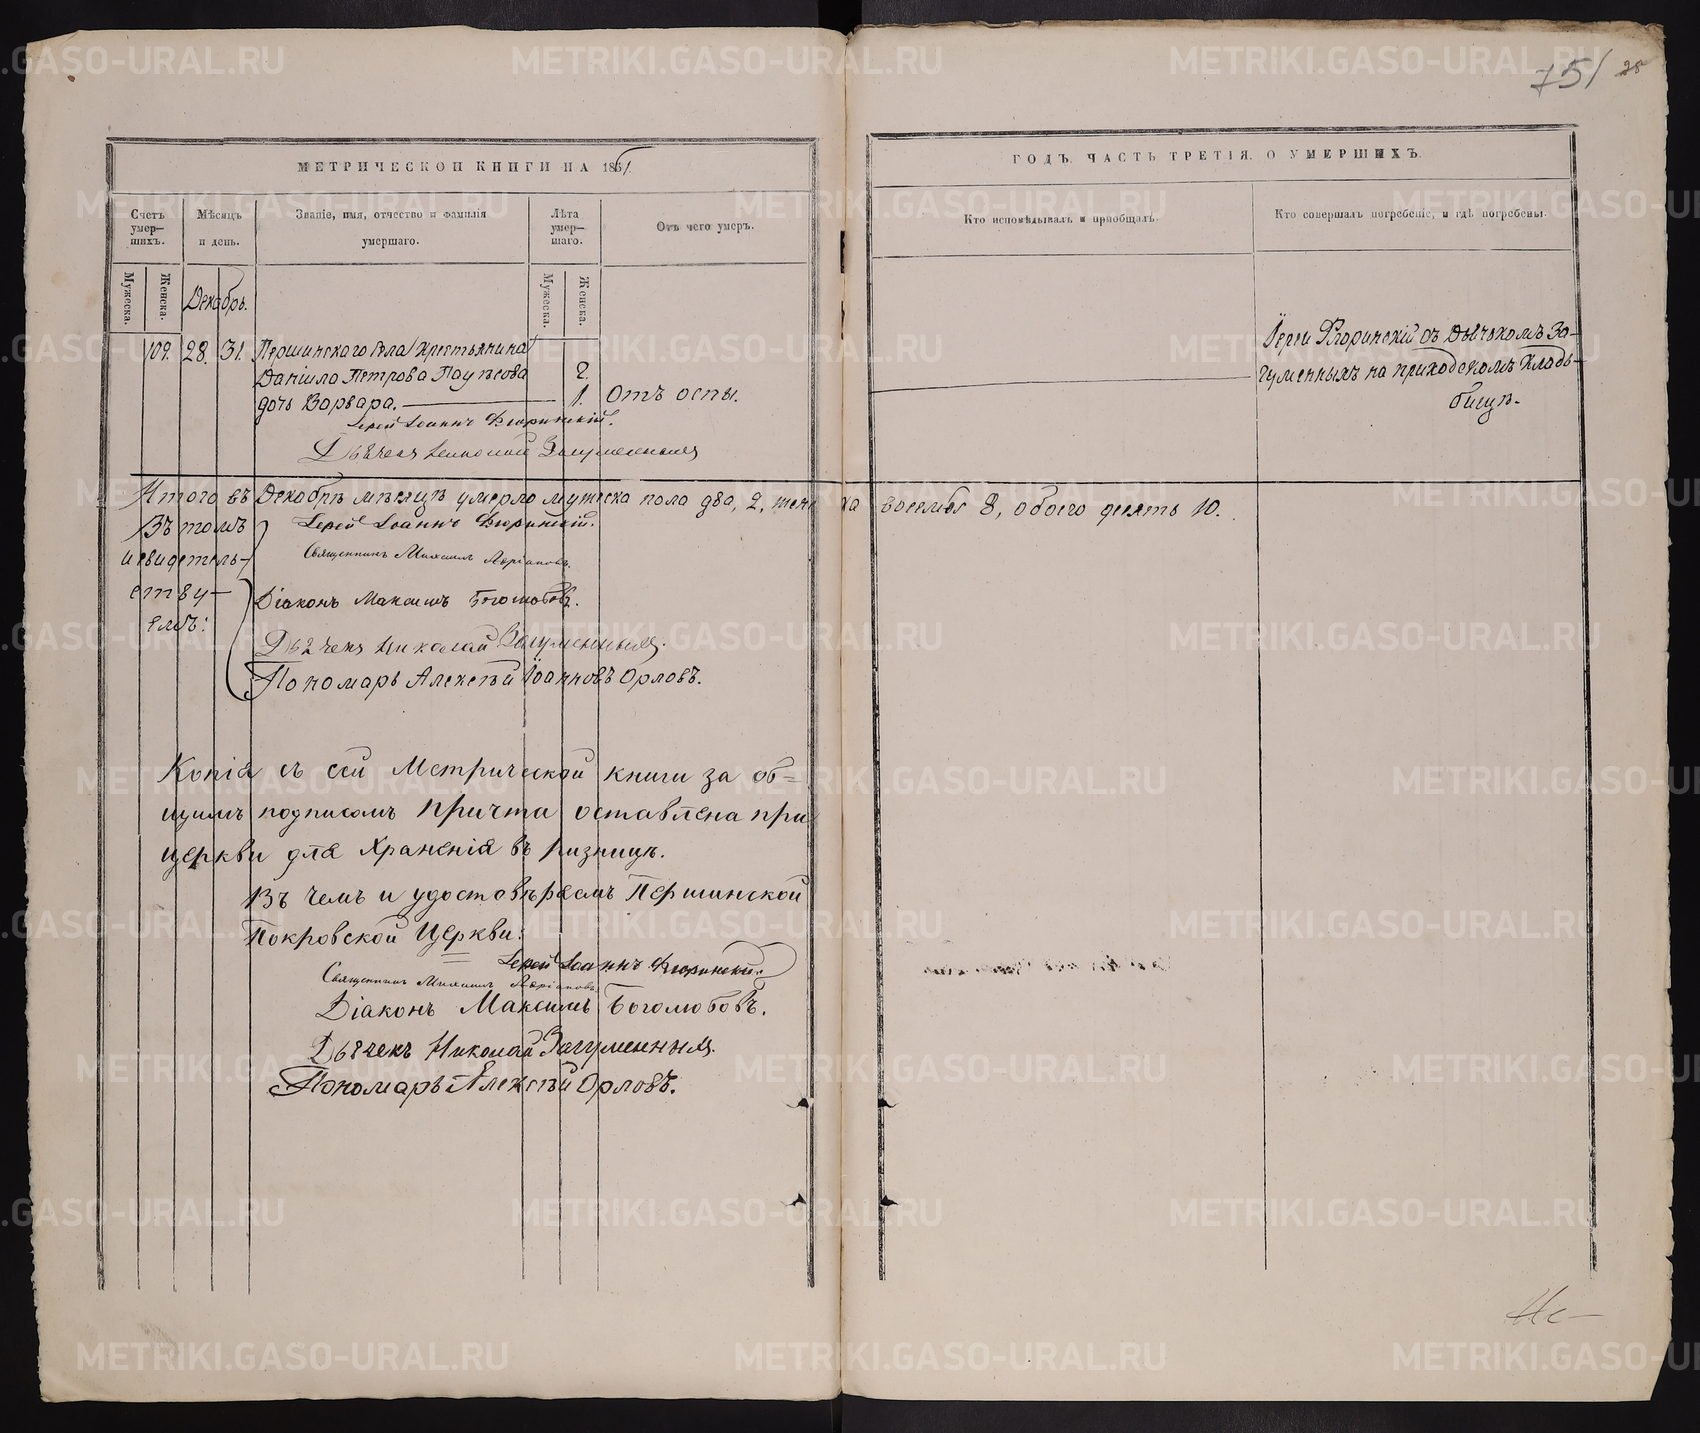 751 28
МЕТРИЧЕСКОЙ КНИГИ НА 1861.
ГОДЪ. ЧАСТЬ ТРЕТІЯ. О УМЕРШИХЪ.
Счетъ умер— шихъ.
Мѣсяцъ и день.
Званіе, имя, отчество и фамилія умершаго.
Лѣта умер— шаго.
Отъ чего умеръ.
Кто исповѣдывалъ и пріобщалъ.
Кто совершалъ погребеніе, и гдѣ погребены.
Мужеска. Женска. Декабрь. Мужеска. Женска.
109. 28. 31. Першинскаго Села Крестьянина
Даніила Петрова 2.
дочь Варвара. 1. Отъ оспы.
Іерей Іоаннъ Флоринскій.
Дьячекъ Николай Загуменныхъ
Іерей Флоринскій съ Дьячкомъ За-
гуменныхъ на приходскомъ кладь-
бищѣ.
Итого въ Декабрѣ мѣсяцѣ умерло мужеска пола два, 2, женска восемь 8, обоего десять 10.
Въ томъ Іерей Іоаннъ Флоринскій.
и свидетель- Священникъ Михаилъ
ству- Діаконъ Максимъ Боголюбовъ.
емъ: Дьячекъ Николай Загуменныхъ.
Пономарь Алексѣй Іоанновъ Орловъ.
Копія съ сей Метрической книги за об=
щимъ подписомъ причта оставлена при
церкви для храненія въ ризницѣ.
Въ чемъ и удостовѣряемъ Першинской
Покровской Церкви:
Іерей Іоаннъ Флоринскій
Священникъ Михаилъ
Діаконъ Максимъ Боголюбовъ.
Дьячекъ Николай Загуменныхъ.
Пономарь Алексѣй Орловъ.
METRIKI.GASO-URAL.RU